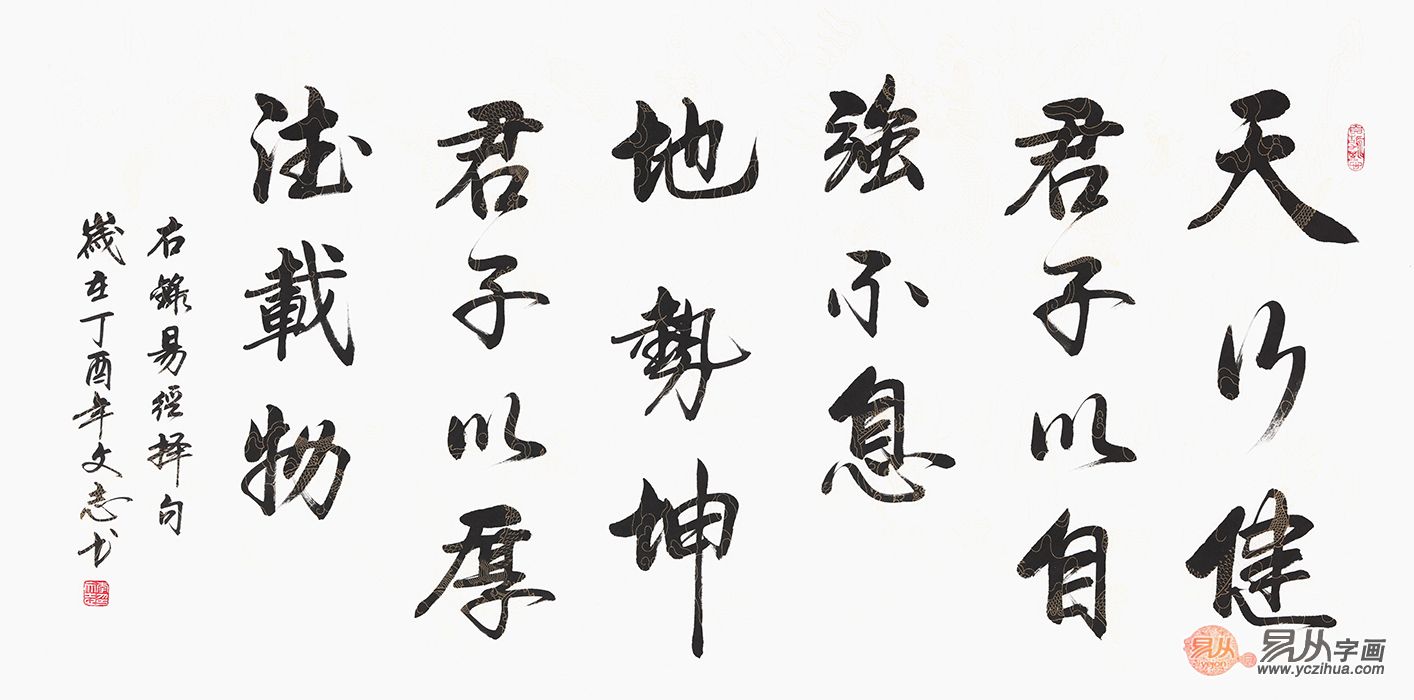 天行健
君子以自
強不息
地勢坤
君子以厚
德載物
右錄易經擇句
歲在丁酉年文志书
易从字画
yijon
www.yczihua.com